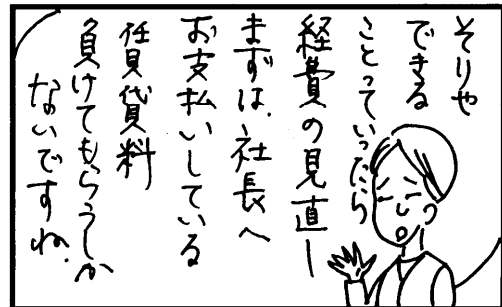 そりゃ
できる
ことっていったら
経費の見直し
まずは、社長へ
お支払いしている
賃貸料
負けてもらうしか
ないですね.